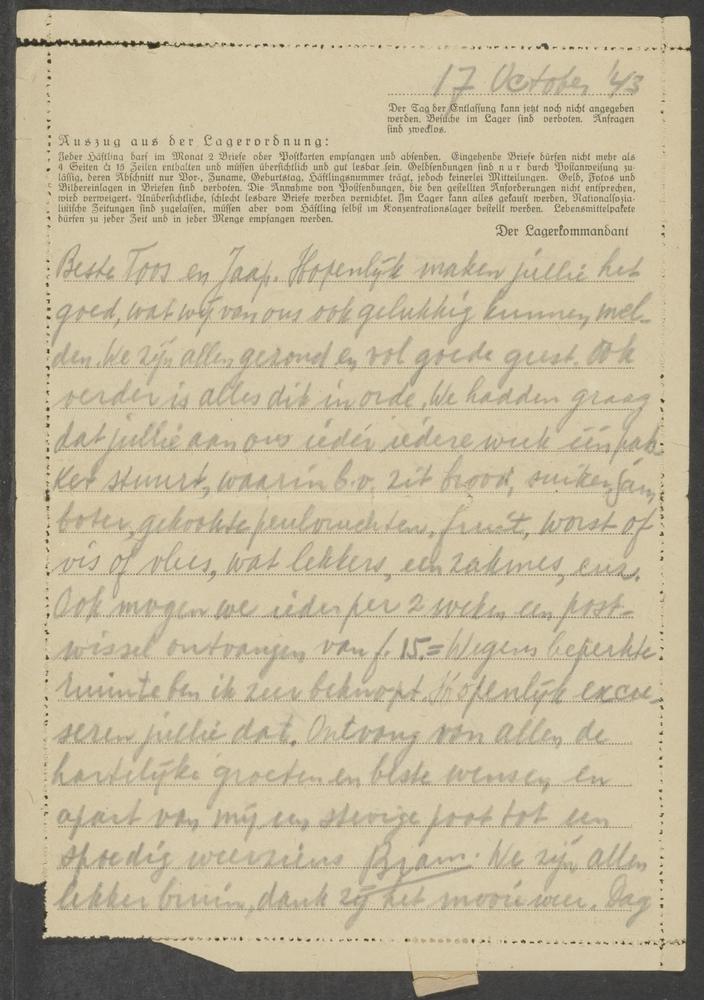 17 October '43
Der Tag der Entlassung kann jetzt noch nicht angegeben
werden. Besuche im Lager sind verboten. Anfragen
sind zwecklos.
Auszug aus der Lagerordnung:
Jeder Häftling darf im Monat 2 Briefe oder Postkarten empfangen und absenden. Eingehende Briefe dürfen nicht mehr als
4 Seiten à 15 Zeilen enthalten und müssen übersichtlich und gut lesbar sein. Geldsendungen sind nur durch Postanweisung zu-
lässig, deren Abschnitt nur Vor-, Zuname, Geburtstag, Häftlingsnummer trägt, jedoch keinerlei Mitteilungen. Geld, Fotos und
Bildereinlagen in Briefen sind verboten. Die Annahme von Postsendungen, die den gestellten Anforderungen nicht entsprechen,
wird verweigert. Unübersichtliche, schlecht lesbare Briefe werden vernichtet. Im Lager kann alles gekauft werden. Nationalsozia-
listische Zeitungen sind zugelassen, müssen aber vom Häftling selbst im Konzentrationslager bestellt werden. Lebensmittelpakete
dürfen zu jeder Zeit und in jeder Menge empfangen werden.
Der Lagerkommandant
Beste Toos en Jaap. Hopenlijk maken jullie het
goed, wat wij van ons ook gelukkig kunnen mel-
den. We zijn allen gezond en vol goede geest. Ook
verder is alles dik in orde. We hadden graag
dat jullie aan ons ieder iedere week een pak
ket stuurt, waarin b.v. zit brood, suiker, jam,
boter, gekookte peulvruchten, fruit, worst of
vis of vlees, wat lekkers, een zakmes, enz.
Ook mogen we ieder per 2 weken een post-
wissel ontvangen van f. 15.= Wegens beperkte
ruimte ben ik zeer beknopt. Hopenlijk excu-
seren jullie dat. Ontvang van allen de
hartelijke groeten en beste wensen, en
apart van mij een stevige poot tot een
spoedig weerziens Bram. We zijn allen
lekker bruin, dank zij het mooie weer. Dag